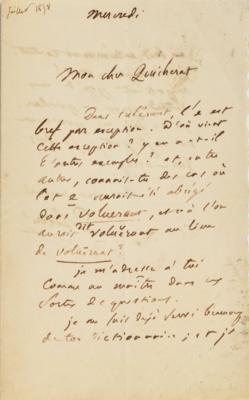 juillet 1878
Mercredi
Mon cher Quicherat
Dans tulerunt, l'e est
bref par exception. D'où vient
cette exception? y en a-t-il
d'autres exemples? et, entre
autres, connais-tu des cas où
l'ot e aurait été abrégé
dans voluerunt, et où l'on
aurait dit voluĕrunt au lieu
de voluērunt?
je m'adresse à toi
comme au maître dans ces
sortes de questions.
je me suis déjà servi beaucoup
de ton dictionnaire; et je